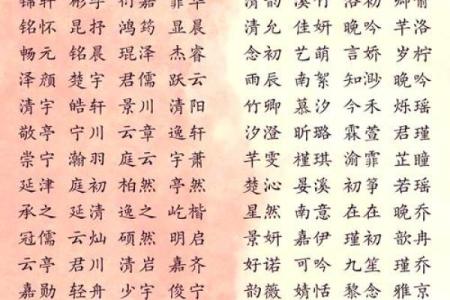 铭怀 彬抒 鸿筠 显宇 清允 佳妍 晚吟 若洛
畅元 昆纾 琨泽 杰睿 念初 萌艺 言娇 岁柠
泽颜 楚宇 君儒 跃云 雨辰 南絮 知渺 晚吟
清宇 皓轩 景川 清阳 竹卿 慕汐 今禾 烁瑶
敬亭 宁川 云章 逸轩 汐澄 昕璐 霖萱 君瑾
崇宁 瀚羽 庭云 宇萧 芊雯 槿琪 渝霏 芷瞳
延津 庭初 柏然 亭然 楚沁 晏溪 初筝 若瑶
承之 延清 逸之 屹楷 星然 南意 在在 晚乔
冠儒 云灿 硕然 明启 景妍 嘉伊 瑾初 歆冉
云亭 君川 清岩 嘉齐 好诺 可微 九笙 乔伊
嘉勋 轻舟 少宇 俊宁 韵薇 婧恬 黎念 雅京